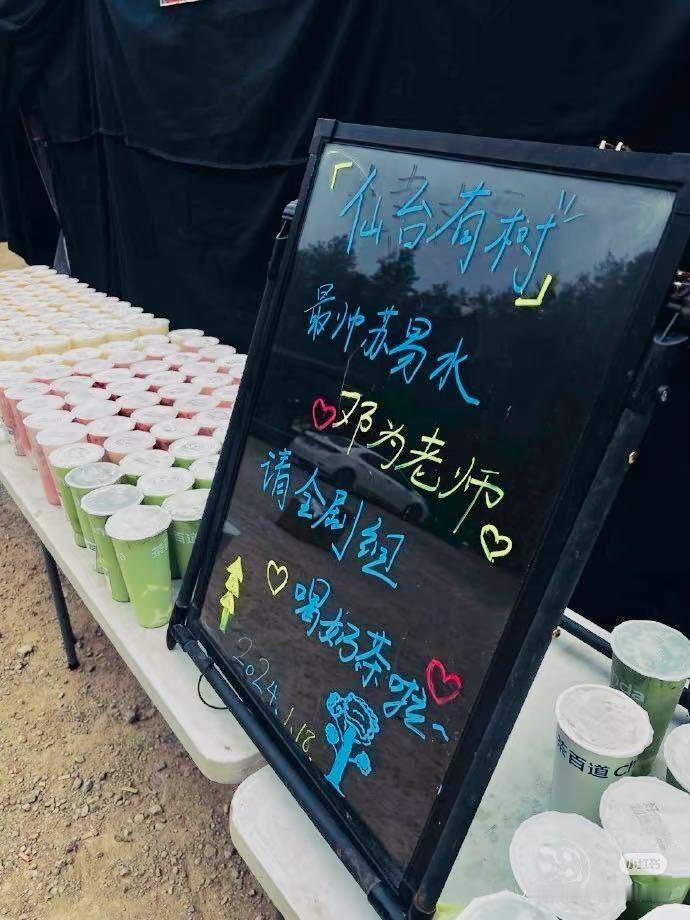 「仙台有树」
最帅苏易水
邓为老师
请全剧组
喝奶茶啦~
2024.1.18.
茶百道 C
茶百道
da
小红书